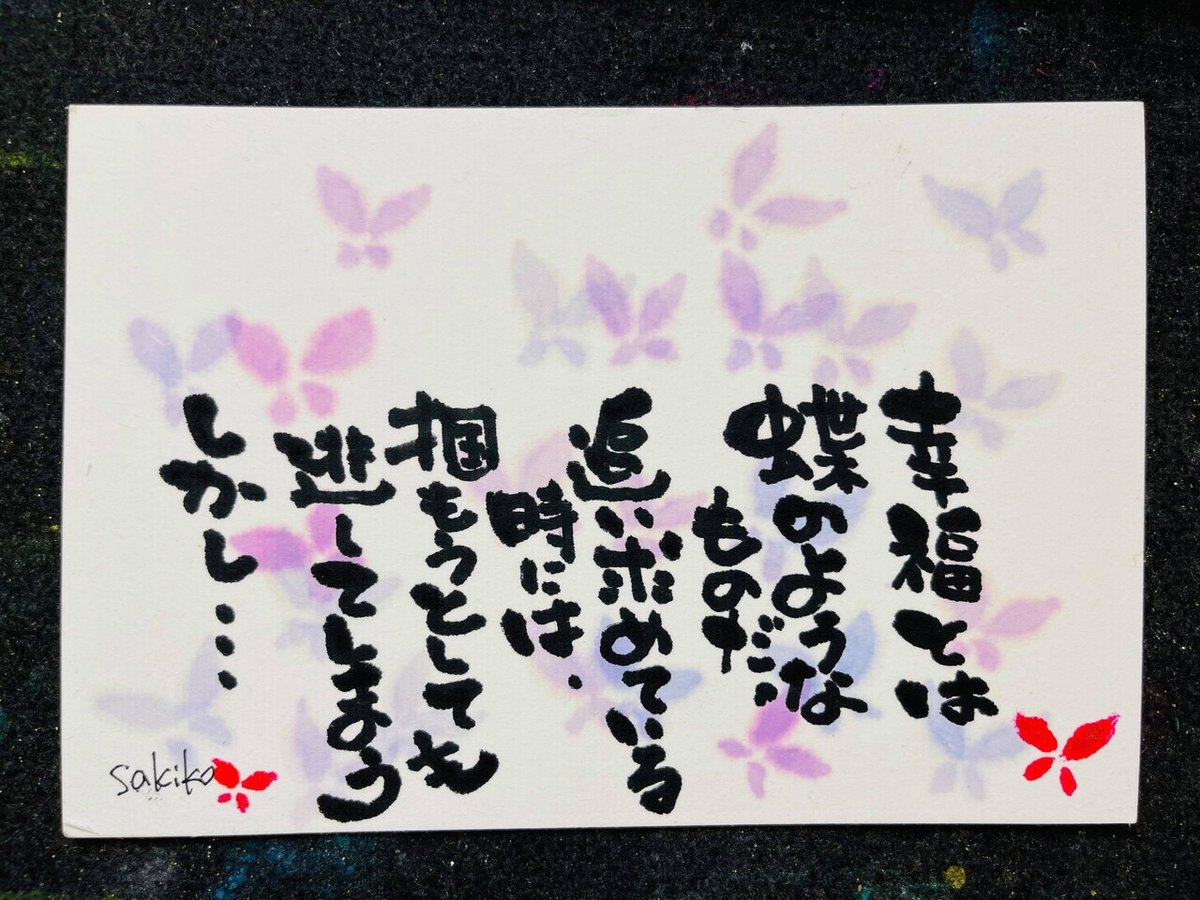 幸福とは
蝶のような
ものだ。
追い求めている
時には、
掴もうとしても
逃してしまう
しかし…
sakiko